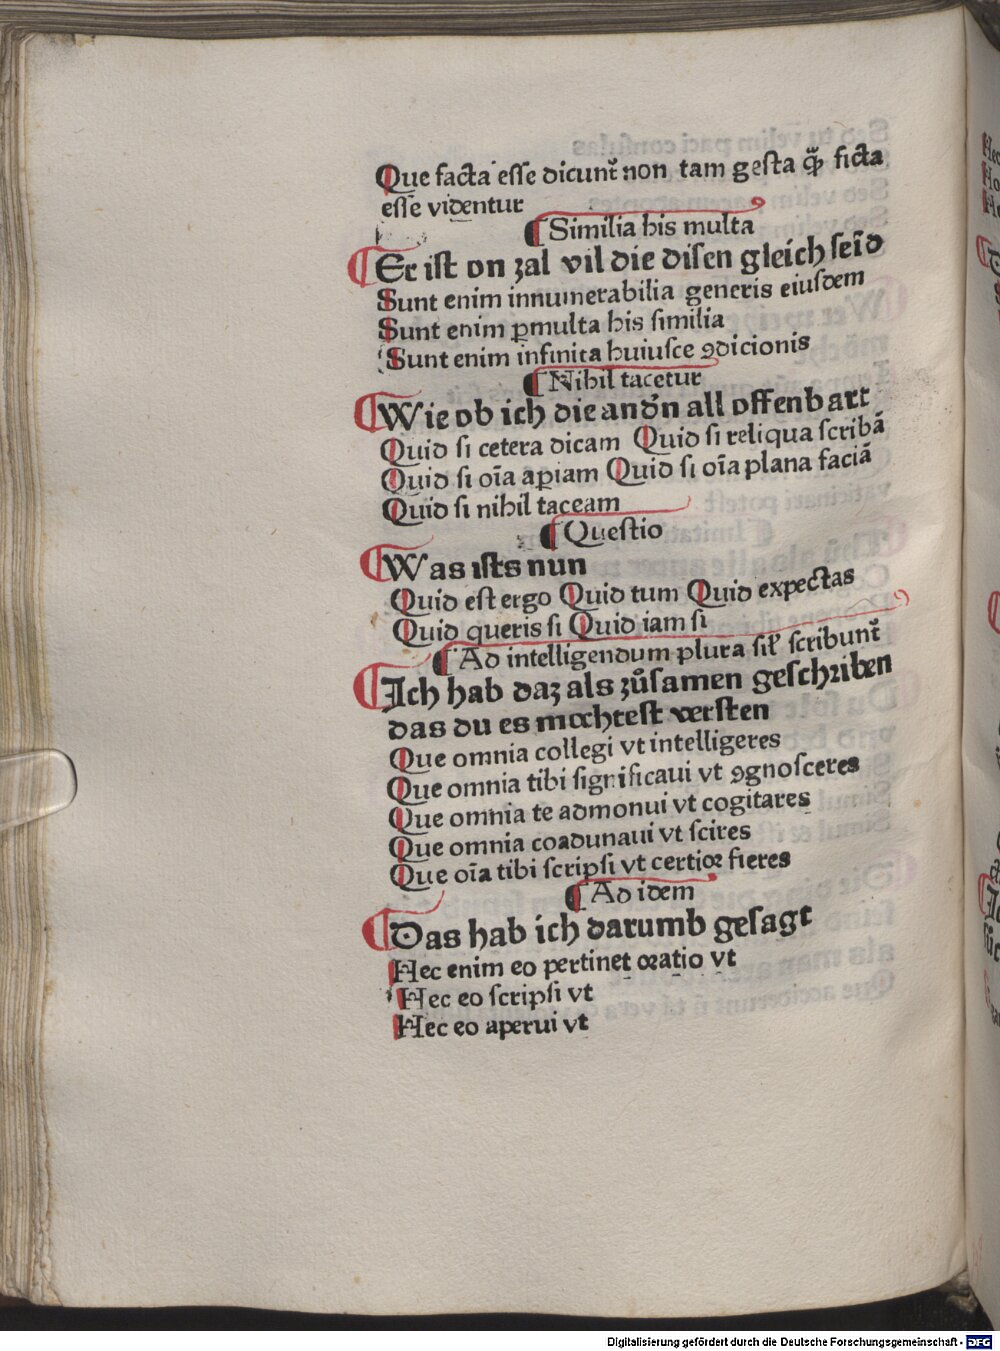 Que facta esse dicunt᷑ non tam gesta qȝ̃ ficta
esse videntur
¶ Similia his multa
¶ Er ist on zal vil die disen gleich seid
Sunt enim innumerabilia generis eiusdem
Sunt enim ꝑmulta his similia
Sunt enim infinita huiusce ꝯdicionis
¶ Nihil tacetur
¶ Wie ob ich die andn̄ all offenbart
Quid si cetera dicam Quid si reliqua scribā
Quid si oīa aꝑiam Quid si oīa plana faciā
Quid si nihil taceam
¶ Questio
¶ Was ists nun
Quid est ergo Quid tum Quid expectas
Quid queris si Quid iam si
¶ Ad intelligendum plura sił scribunt᷑
¶ Ich hab daz als zůsamen geschriben
das du es mochtest versten
Que omnia collegi vt intelligeres
Que omnia tibi significaui vt ꝯgnosceres
Que omnia te admonui vt cogitares
Que omnia coadunaui vt scires
Que oīa tibi scripsi vt certioꝛ fieres
¶ Ad idem
¶ Das hab ich darumb gesagt
Hec enim eo pertinet oꝛatio vt
Hec eo scripsi vt
Hec eo aperui vt
Digitalisierung gefördert durch die Deutsche Forschungsgemeinschaft - DFG